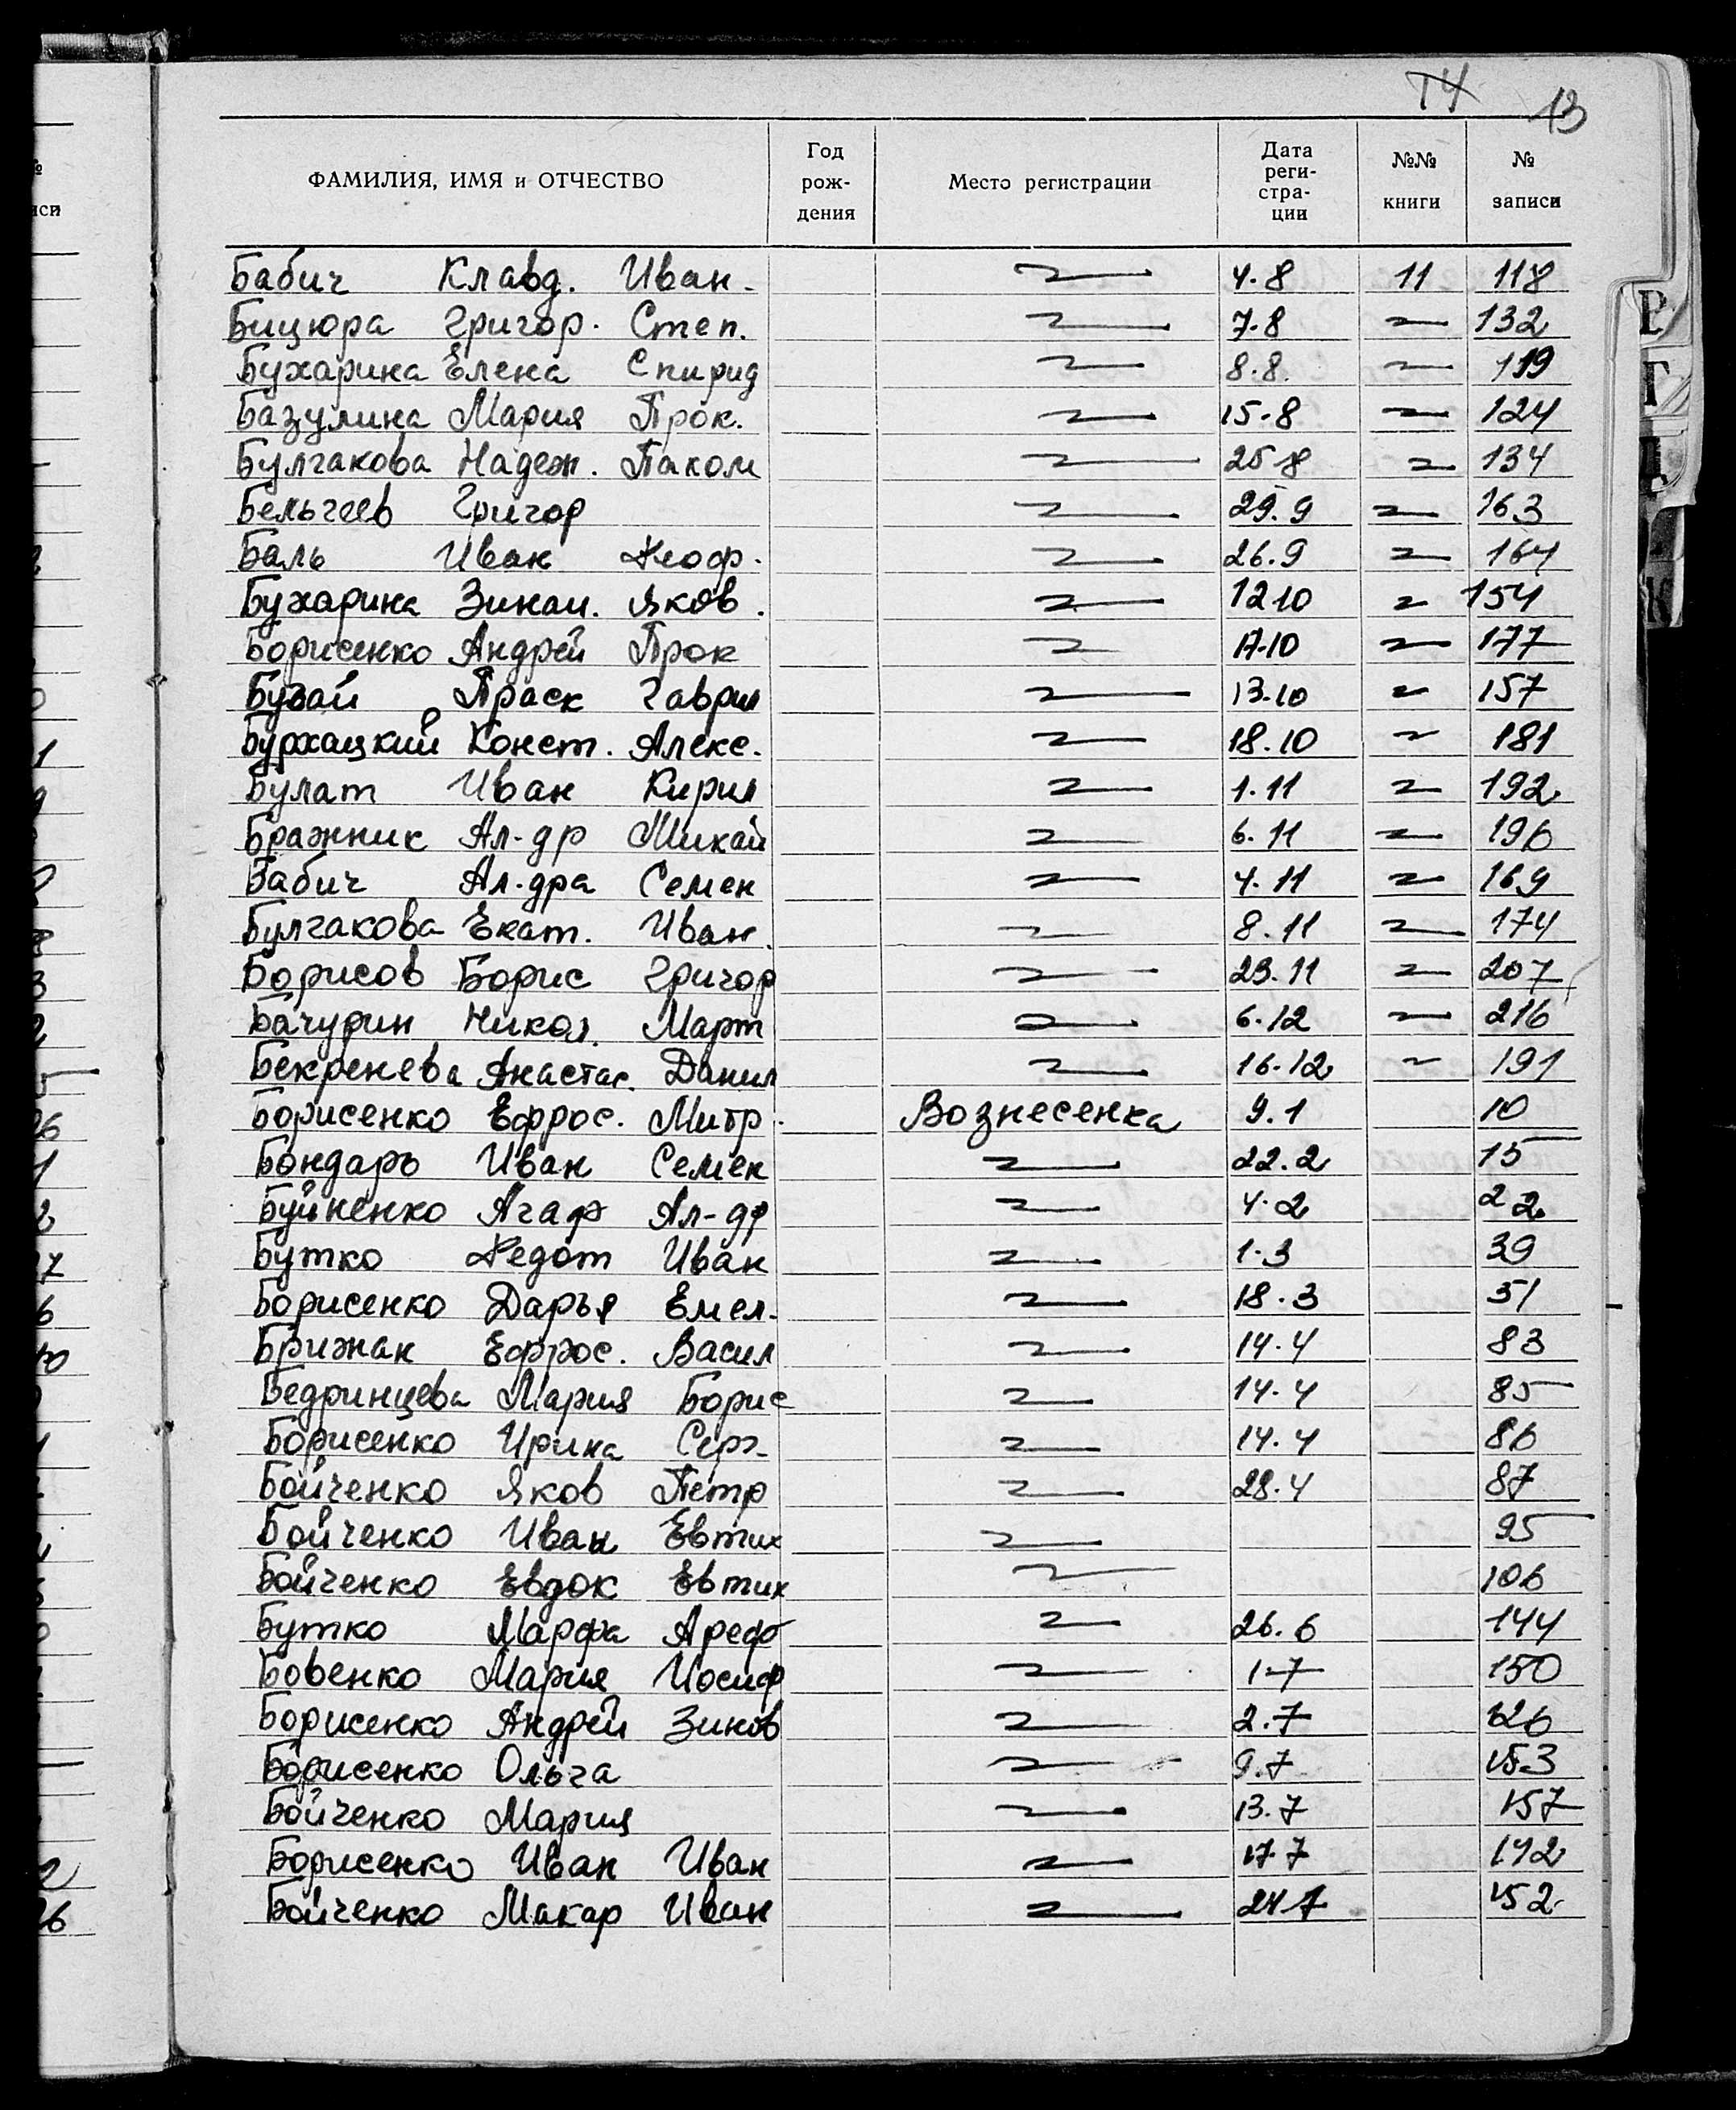 14 13
ФАМИЛИЯ, ИМЯ и ОТЧЕСТВО Год рож- дения Место регистрации Дата реги- стра- ции №№ книги № записи
Бабич Клавд. Иван. 4.8 11 118
Бицюра Григор. Степ. 7.8 132
Бухарина Елена Спирид 8.8. 119
Базулина Мария Прок. 15.8 124
Булгакова Надеж. Пахом 25 8 134
Бельчеев Григор 29.9 163
Баль Иван Феоф. 26.9 164
Бухарина Зинаи. Яков. 12 10 154
Борисенко Андрей Прок 17.10 177
Бузай Праск Гаврил 13.10 157
Бурхацкий Конст. Алекс. 18.10 181
Булат Иван Кирил 1.11 192
Бражник Ал-др Михай 6.11 196
Бабич Ал-дра Семен 4.11 169
Булгакова Екат. Иван. 8.11 174
Борисов Борис Григор 23.11 207
Бачурин Никол. Март 6.12 216
Бекренева Анастас. Данил 16.12 191
Борисенко Ефрос. Митр. Вознесенка 9.1 10
Бондарь Иван Семен 22.2 15
Буйненко Агаф Ал-др 4.2 22
Бутко Федот Иван 1.3 39
Борисенко Дарья Емел. 18.3 51
Брижак Ефрос. Васил 14.4 83
Бедринцева Мария Борис 14.4 85
Борисенко Ирина Серг. 14.4 86
Бойченко Яков Петр 28.4 87
Бойченко Иван Евтих 95
Бойченко Евдок Евтих 106
Бутко Марфа Ареф 26.6 144
Бовенко Мария Иосиф 1.7 150
Борисенко Андрей Зинов 2.7 126
Борисенко Ольга 9.7 153
Бойченко Мария 13.7 157
Борисенко Иван Иван 17.7 142
Бойченко Макар Иван 24 7 152